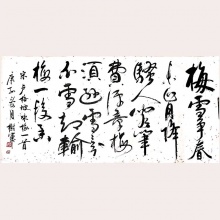 梅雪爭春
未肯降
騷人閣筆
費評章梅
須遜雪三
分白雪却輸
梅一段香
宋卢梅坡咏梅一首